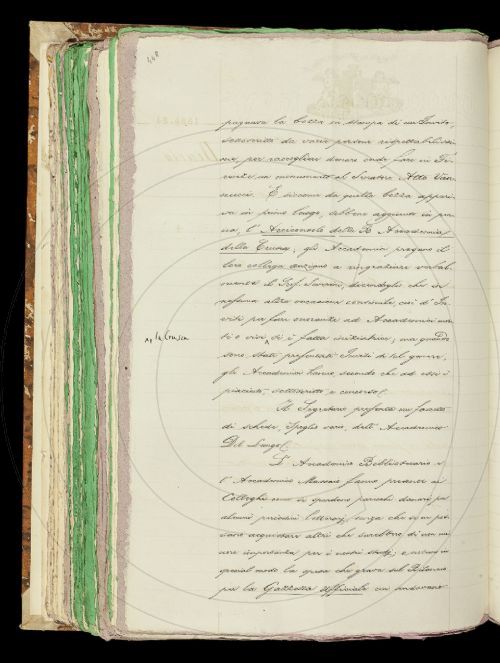 448
pagnava la bozza in stampa di un Invito,
sottoscritto da varie persone rispettabilissi-
me, per raccogliere denare onde fare in Fi-
renze, un monumento al Senatore Atto Van-
nucci. E siccome da quella bozza appari-
va in primo luogo, sebbene aggiunto in pen-
na, l'Arciconsolo della R. Accademia
della Crusca, gli Accademici pregano il
loro collega anziano a ringraziare verbal-
mente il Prof. dicendogli che in
nessuna altra occasione consimile, cioè d'In-
viti per fare onoranze ad Accademici mor-
ti o vivi si è fatta iniziatrice, ma quando
ng la Crusca
sono stati presentati Inviti di tal genere,
gli Accademici hanno secondo che ad essi è
piaciuto, sottoscritto e concorso.
Il Segretario presenta un fascetto
di schede, spoglio varie, dell'Accademico
Del Lungo.
L'Accademico Bibliotecario e
l'Accademico Massaro fanno presente ai
Colleghi come si spendono parecchi denari per
alcuni periodici letterari, senza che si
acquistare altri che sarebbero di
importanza per i nostri studj; e notano in
special modo la spesa che grava sul Bilancio
per la Gazzetta Ufficiale cui andavano